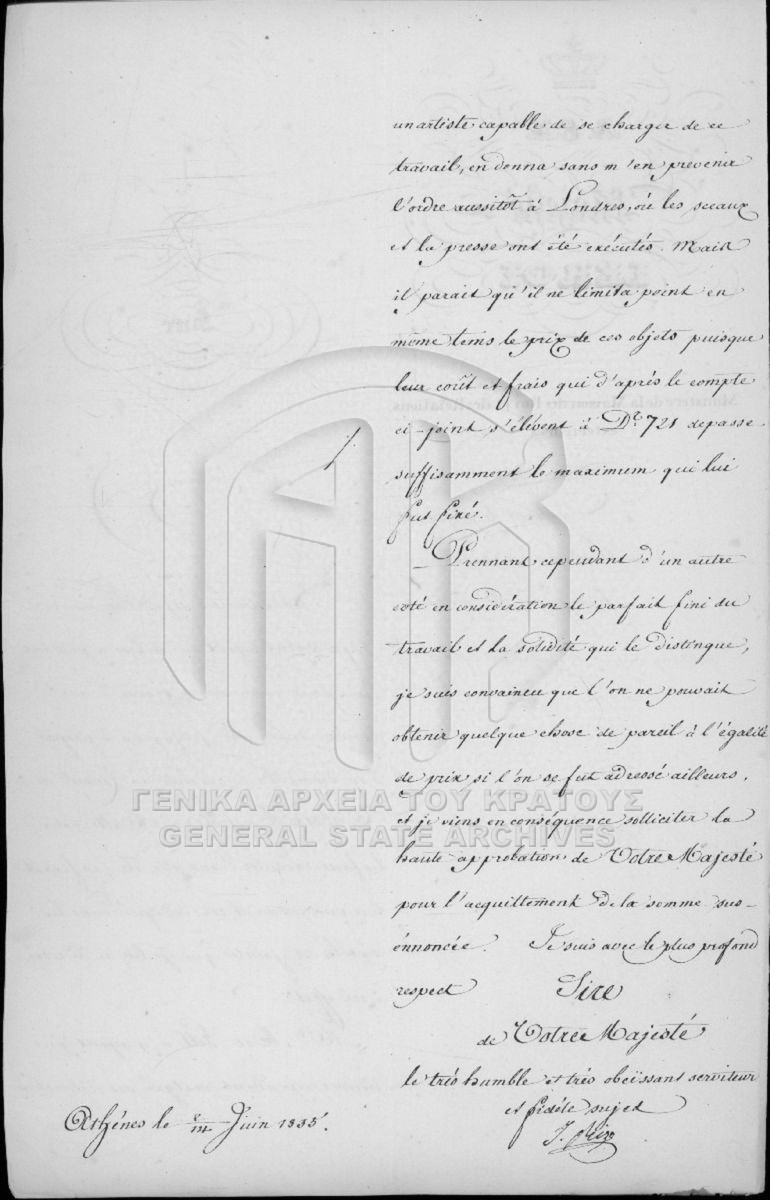 un artiste capable de se charger de ce
travail, en donna sans m'en prevenir
l'ordre aussitôt à Londres, où les sceaux
et la presse ont été exécutés. Mais
il parait qu'il ne limita point en
même tems le prix de ces objets puisque
leur coût et frais qui d'après le compte
ci-joint s'élèvent à Dr. 721 depasse
suffisamment le maximum qui lui
fut fixé.
Prennant cependant d'un autre
coté en considération le parfait fini du
travail et la solidité qui le distingue,
je suis convaincu que l'on ne pouvait
obtenir quelque chose de pareil à l'égalité
de prix si l'on se fut adressé ailleurs,
ΓΕΝΙΚΑ ΑΡΧΕΙΑ ΤΟΥ ΚΡΑΤΟΥΣ
et je viens en conséquence solliciter la
GENERAL STATE ARCHIVES
haute approbation de Votre Majesté
pour l'acquittement de la somme sus-
énnoncée. Je suis avec le plus profond
respect Sire
de Votre Majesté
le très humble et très obeïssant serviteur
et fidèle sujet
Athénes le Juin 1835.